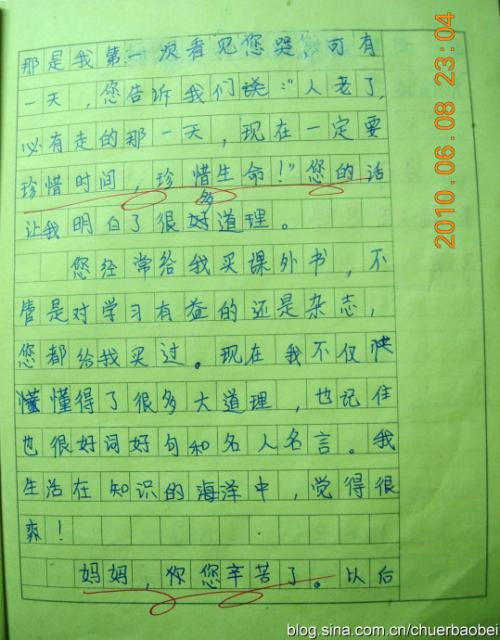 那是我第一次看见您哭，可有
一天，您告诉我们说：“人老了，
必有走的那一天，现在一定要
珍惜时间，珍惜生命！”您的话
多
让我明白了很好道理。
您经常给我买课外书，不
管是对学习有益的还是杂志，
您都给我买过。现在我不仅快
懂懂得了很多大道理，也记住
也很好词好句和名人名言。我
生活在知识的海洋中，觉得很
爽！
妈妈，你您辛苦了。以后
2010.06.08 23:04
blog.sina.com.cn/chuerbaobei